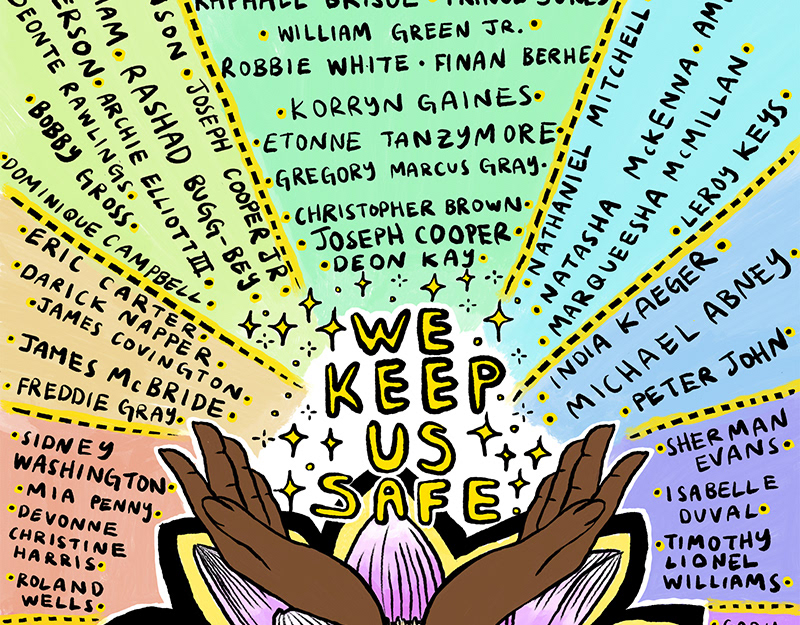 RAPHAEL BRISOL
• WILLIAM GREEN JR. •
ROBBIE WHITE • FINAN BERHE
• KORRYN GAINES •
• ETONNE TANZYMORE •
• GREGORY MARCUS GRAY •
• CHRISTOPHER BROWN •
• JOSEPH COOPER •
• DEON KAY •
JOSEPH COOPER JR •
RASHAD BUGG-BEY •
ARCHIE ELLIOTT III •
DEONTE RAWLINGS •
• BOBBY GROSS •
DOMINIQUE CAMPBELL •
• ERIC CARTER •
• DARICK NAPPER •
• JAMES COVINGTON •
• JAMES McBRIDE •
• FREDDIE GRAY •
• SIDNEY
WASHINGTON •
• MIA PENNY •
• DEVONNE
CHRISTINE
HARRIS •
• ROLAND
WELLS •
• NATHANIEL MITCHELL
• NATASHA McKENNA •
• MARQUEESHA McMILLAN •
• LEROY KEYS •
• INDIA KAEGER •
• MICHAEL ABNEY •
• PETER JOHN •
• SHERMAN
EVANS •
• ISABELLE
DUVAL •
• TIMOTHY
LIONEL
WILLIAMS •
WE
KEEP
US
SAFE